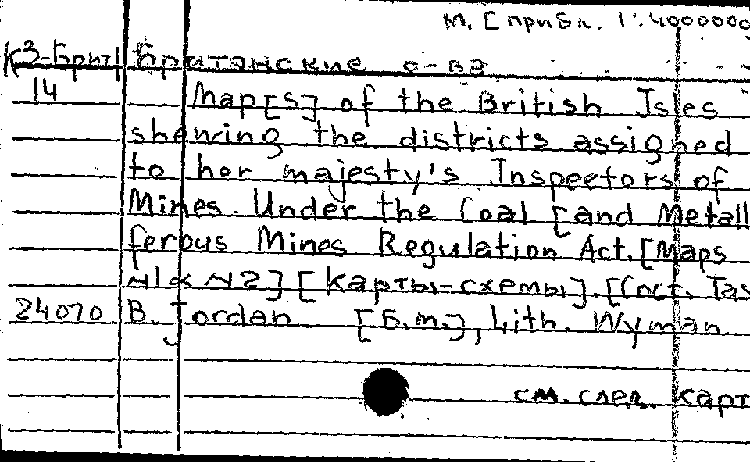 М. [прибл. 1:4000000
К3-Брит Британские о-ва
14 Map[s] of the British Isles
shewing the districts assigned
to her majesty's Inspectors of
Mines Under the Coal [and Metall
ferous Mines Regulation Act. [Maps
N1 & N2] [Карты-схемы]. [Сост. Jas
24070 B. Jordan [Б.м.], Lith. Wyman
см. след. карт